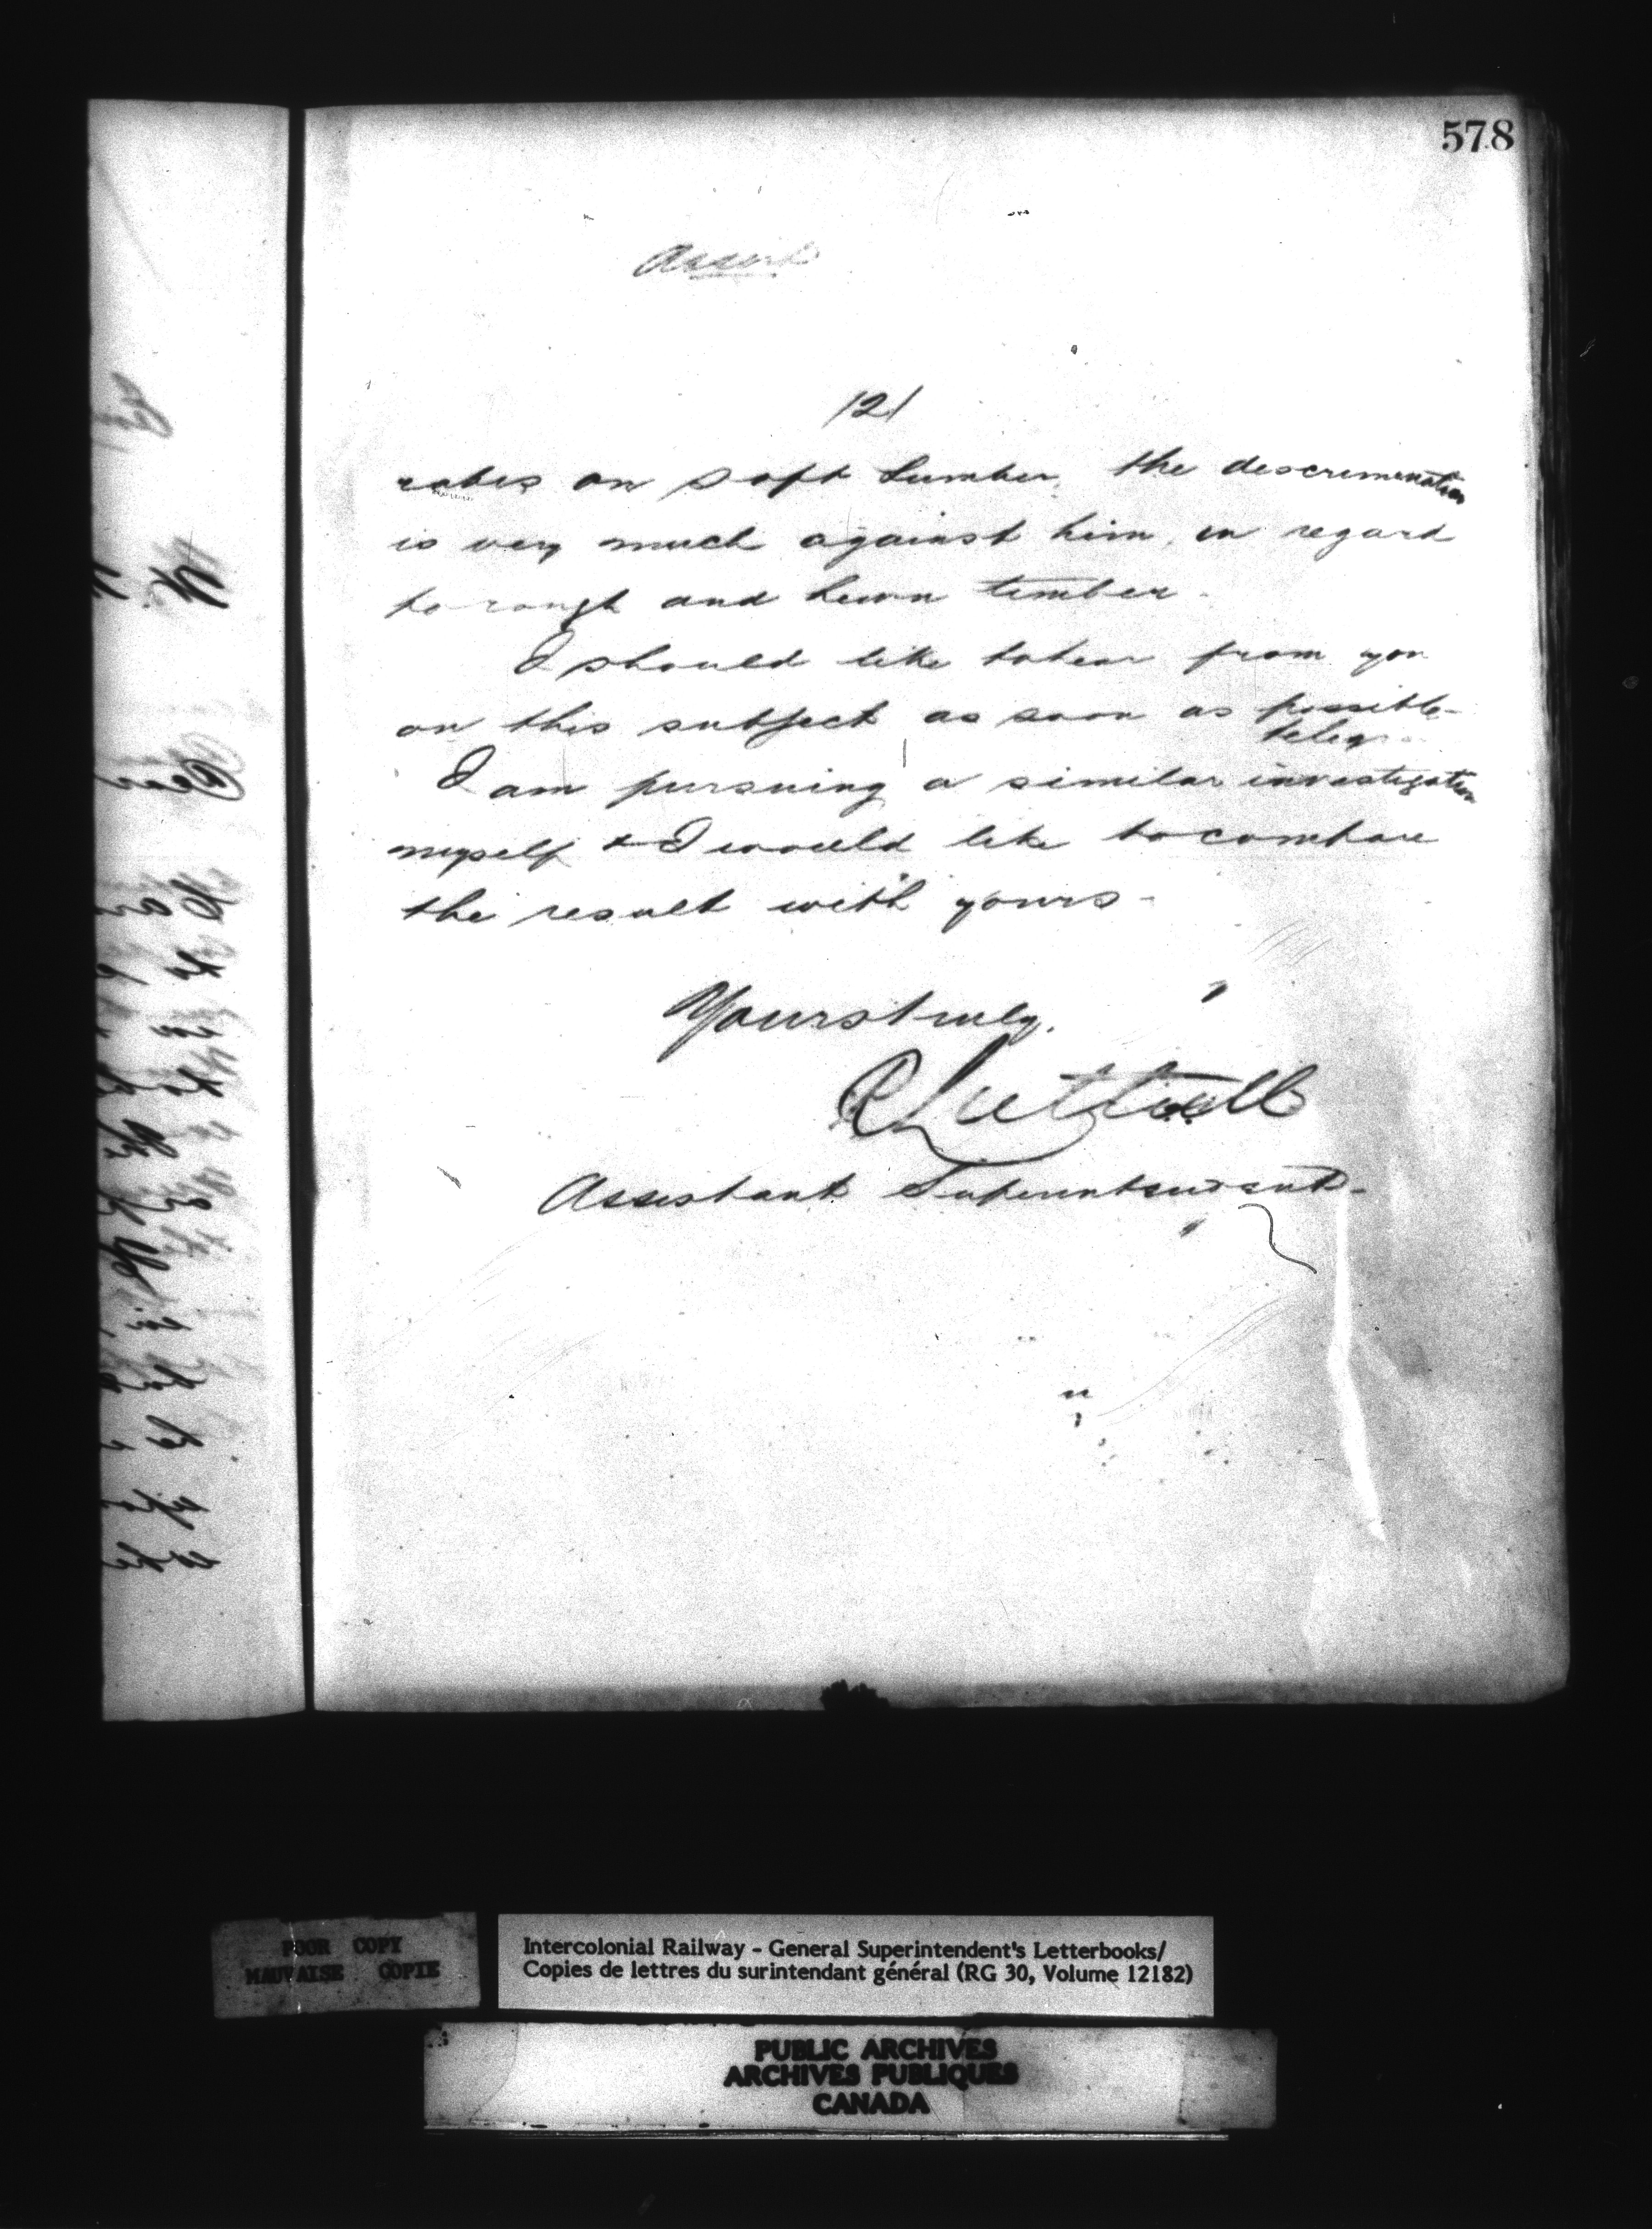 578
Assist
/2/
rates on soft Lumber, the descremenation
is very much against him, in regard
to rough and hewn timber.
I should like to hear from you
on this subject as soon as possible-
I am pursuing a similar investigation
myself & I would like to compare
the result with yours-
Yours truly,
R Luttrell
Assistant Superintendent-
POOR COPY
MAUVAISE COPIE
Intercolonial Railway - General Superintendent's Letterbooks/
Copies de lettres du surintendant général (RG 30, Volume 12182)
PUBLIC ARCHIVES
ARCHIVES PUBLIQUES
CANADA